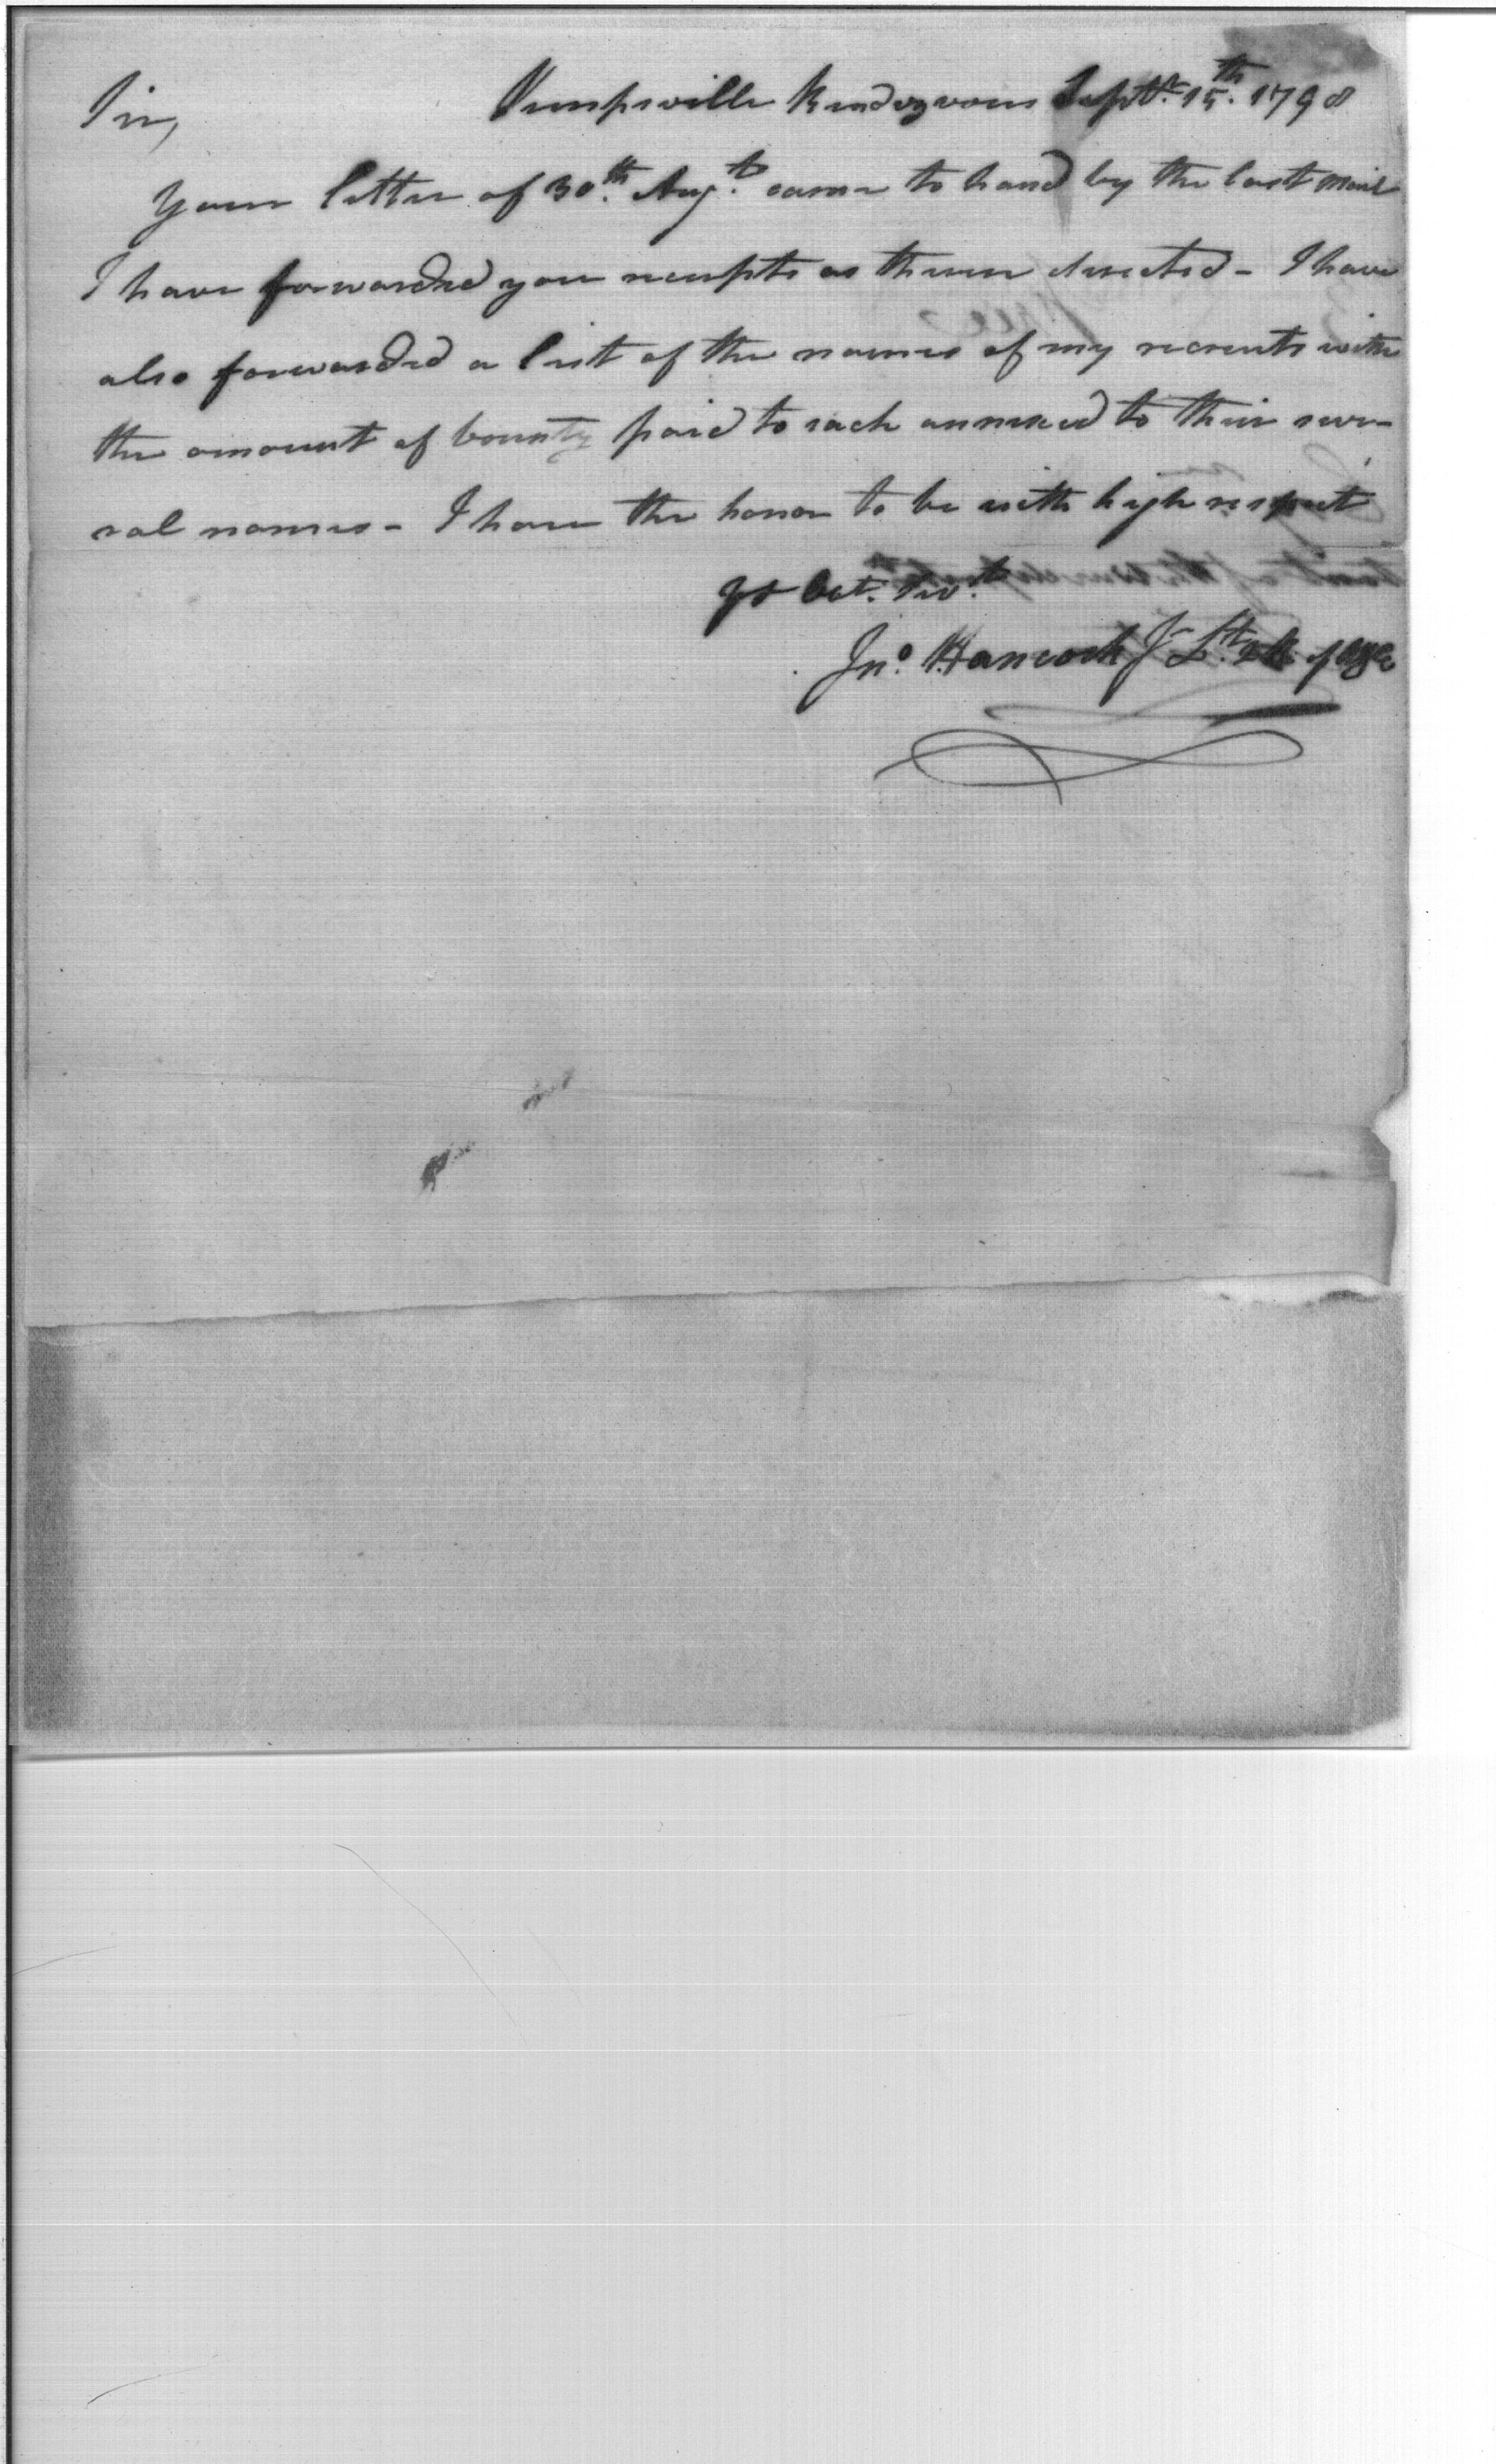 Sir, Kempsville Rendezvous Septr. 15th. 1798
Your letter of 30th. Augt. came to hand by the last mail
I have forwarded you receipts as therein directed - I have
also forwarded a list of the names of my recruits with
the amount of bounty paid to each annexed to their seve-
ral names - I have the honor to be with high respect
yr Obt. Servt.
Jno. Hancock Jr Lt. 2d R of A&E